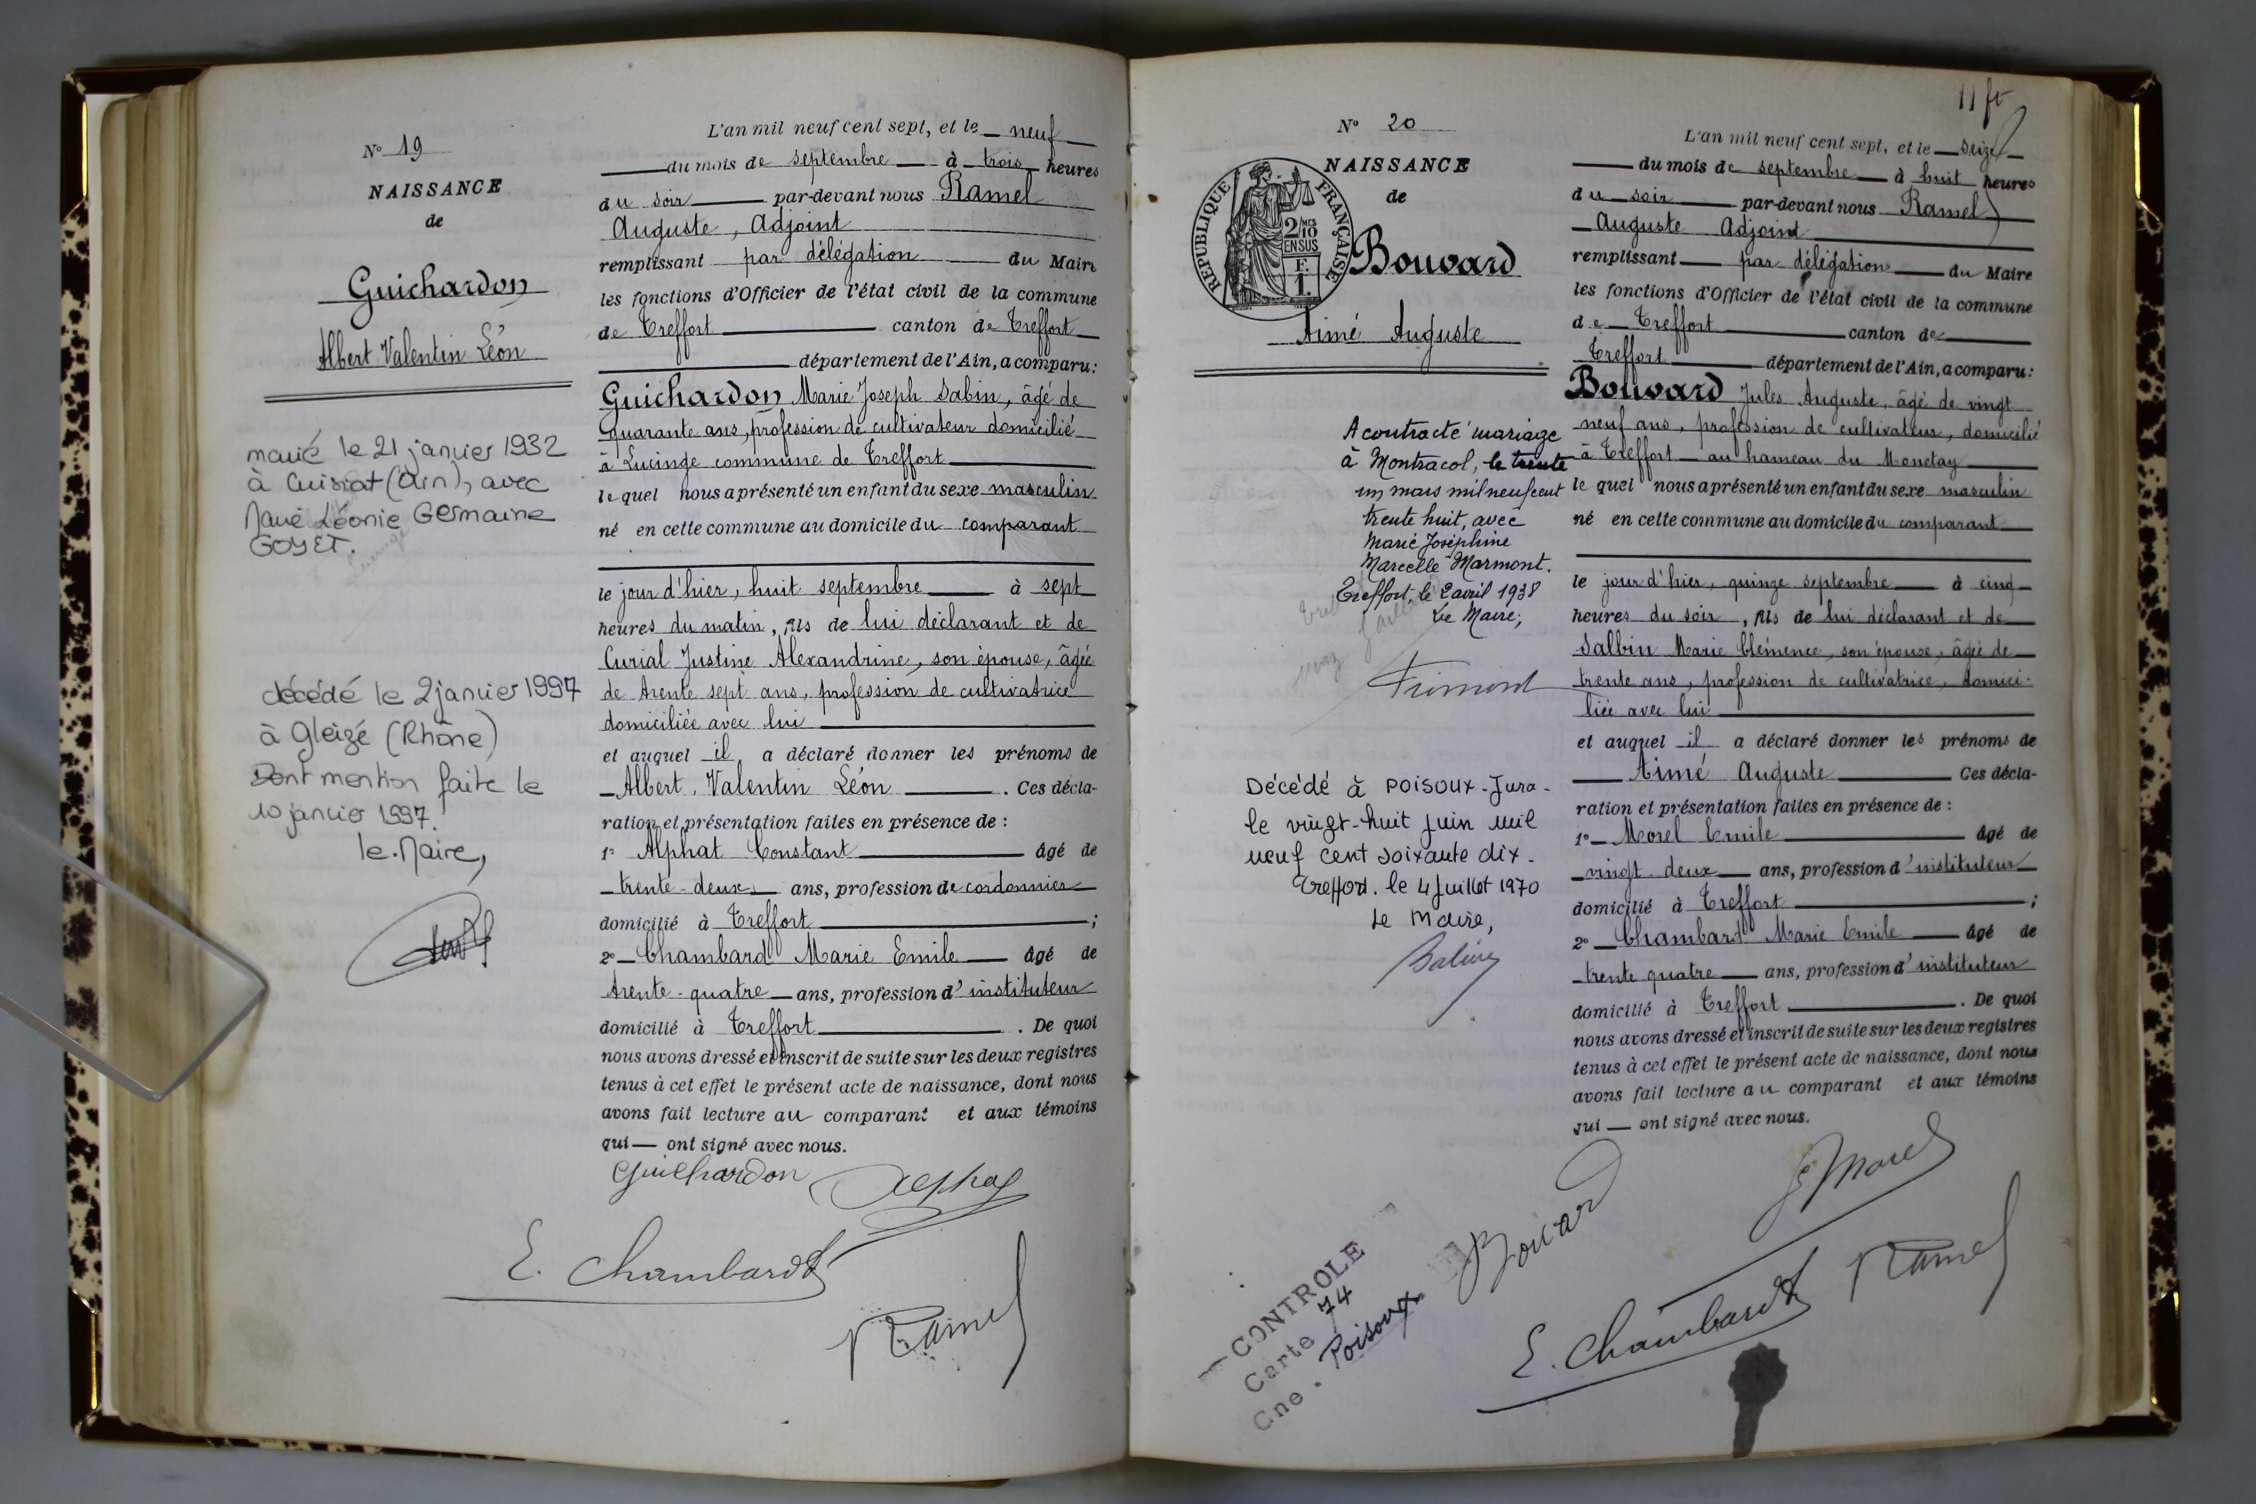 N° 19
NAISSANCE
de
Guichardon
Albert Valentin Léon
marié le 21 janvier 1932
à Cuisiat (Ain), avec
Marie Léonie Germaine
GOYET.
décédé le 2 janvier 1997
à Gleizé (Rhône)
Dont mention faite le
10 janvier 1997.
le Maire,
L'an mil neuf cent sept, et le neuf
du mois de septembre à trois heures
du soir par-devant nous Ramel
Auguste, Adjoint
remplissant par délégation du Maire
les fonctions d'Officier de l'état civil de la commune
de Treffort canton de Treffort
département de l'Ain, a comparu:
Guichardon Marie Joseph Sabin, âgé de
quarante ans, profession de cultivateur domicilié
à Lucinge commune de Treffort
lequel nous a présenté un enfant du sexe masculin
né en cette commune au domicile du comparant
le jour d'hier, huit septembre à sept
heures du matin, fils de lui déclarant et de
Curial Justine Alexandrine, son épouse, âgée
de trente sept ans, profession de cultivatrice
domiciliée avec lui
et auquel il a déclaré donner les prénoms de
Albert, Valentin Léon . Ces décla-
ration et présentation faites en présence de :
1° Alphat Constant âgé de
trente-deux ans, profession de cordonnier
domicilié à Treffort ;
2° Chambard Marie Emile âgé de
trente-quatre ans, profession d'instituteur
domicilié à Treffort . De quoi
nous avons dressé et inscrit de suite sur les deux registres
tenus à cet effet le présent acte de naissance, dont nous
avons fait lecture au comparant et aux témoins
qui ont signé avec nous.
Guichardon Alphat
E. Chambard
Ramel
N° 20
NAISSANCE
de
REPUBLIQUE FRANÇAISE
2/10
EN SUS
F.
1.
Bouvard
Aimé Auguste
A contracté mariage
à Montracol, le trente
un mars mil neuf cent
trente huit, avec
Marie Joséphine
Marcelle Marmont.
Treffort, le 2 avril 1938
Le Maire;
Décédé à POISOUX-Jura-
le vingt-huit juin mil
neuf cent soixante dix.
Treffort. le 4 Juillet 1970
Le Maire,
CONTROLE
Carte 74
Cne. Poisoux
L'an mil neuf cent sept, et le seize
du mois de septembre à huit heures
du soir par-devant nous Ramel
Auguste Adjoint
remplissant par délégation du Maire
les fonctions d'Officier de l'état civil de la commune
de Treffort canton de
Treffort département de l'Ain, a comparu:
Bouvard Jules Auguste, âgé de vingt
neuf ans, profession de cultivateur, domicilié
à Treffort au hameau du Monetay
lequel nous a présenté un enfant du sexe masculin
né en cette commune au domicile du comparant
le jour d'hier, quinze septembre à cinq
heures du soir, fils de lui déclarant et de
Salbin Marie Clémence, son épouse, âgée de
trente ans, profession de cultivatrice, domici-
liée avec lui
et auquel il a déclaré donner les prénoms de
Aimé Auguste Ces décla-
ration et présentation faites en présence de :
1° Morel Emile âgé de
vingt deux ans, profession d'instituteur
domicilié à Treffort ;
2° Chambard Marie Emile âgé de
trente quatre ans, profession d'instituteur
domicilié à Treffort . De quoi
nous avons dressé et inscrit de suite sur les deux registres
tenus à cet effet le présent acte de naissance, dont nous
avons fait lecture au comparant et aux témoins
qui ont signé avec nous.
Bouvard E Morel
E. Chambard Ramel